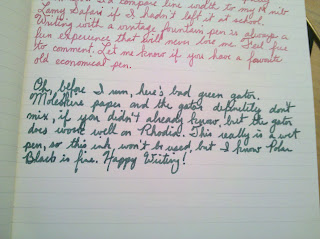 compare line width to my M nib
Lamy Safari if I hadn't left it at school.
Writing with a vintage fountain pen is always a
fun experience that will never lose me. Feel free
to comment. Let me know if you have a favorite
old economical pen.
Oh, before I run, here's bad green gator.
Moleskine paper and the gator definitely don't
mix, if you didn't already know, but the gator
does work well on Rhodia. This really is a wet
pen, so this ink won't be used, but I know Polar
Black is fine. Happy Writing!